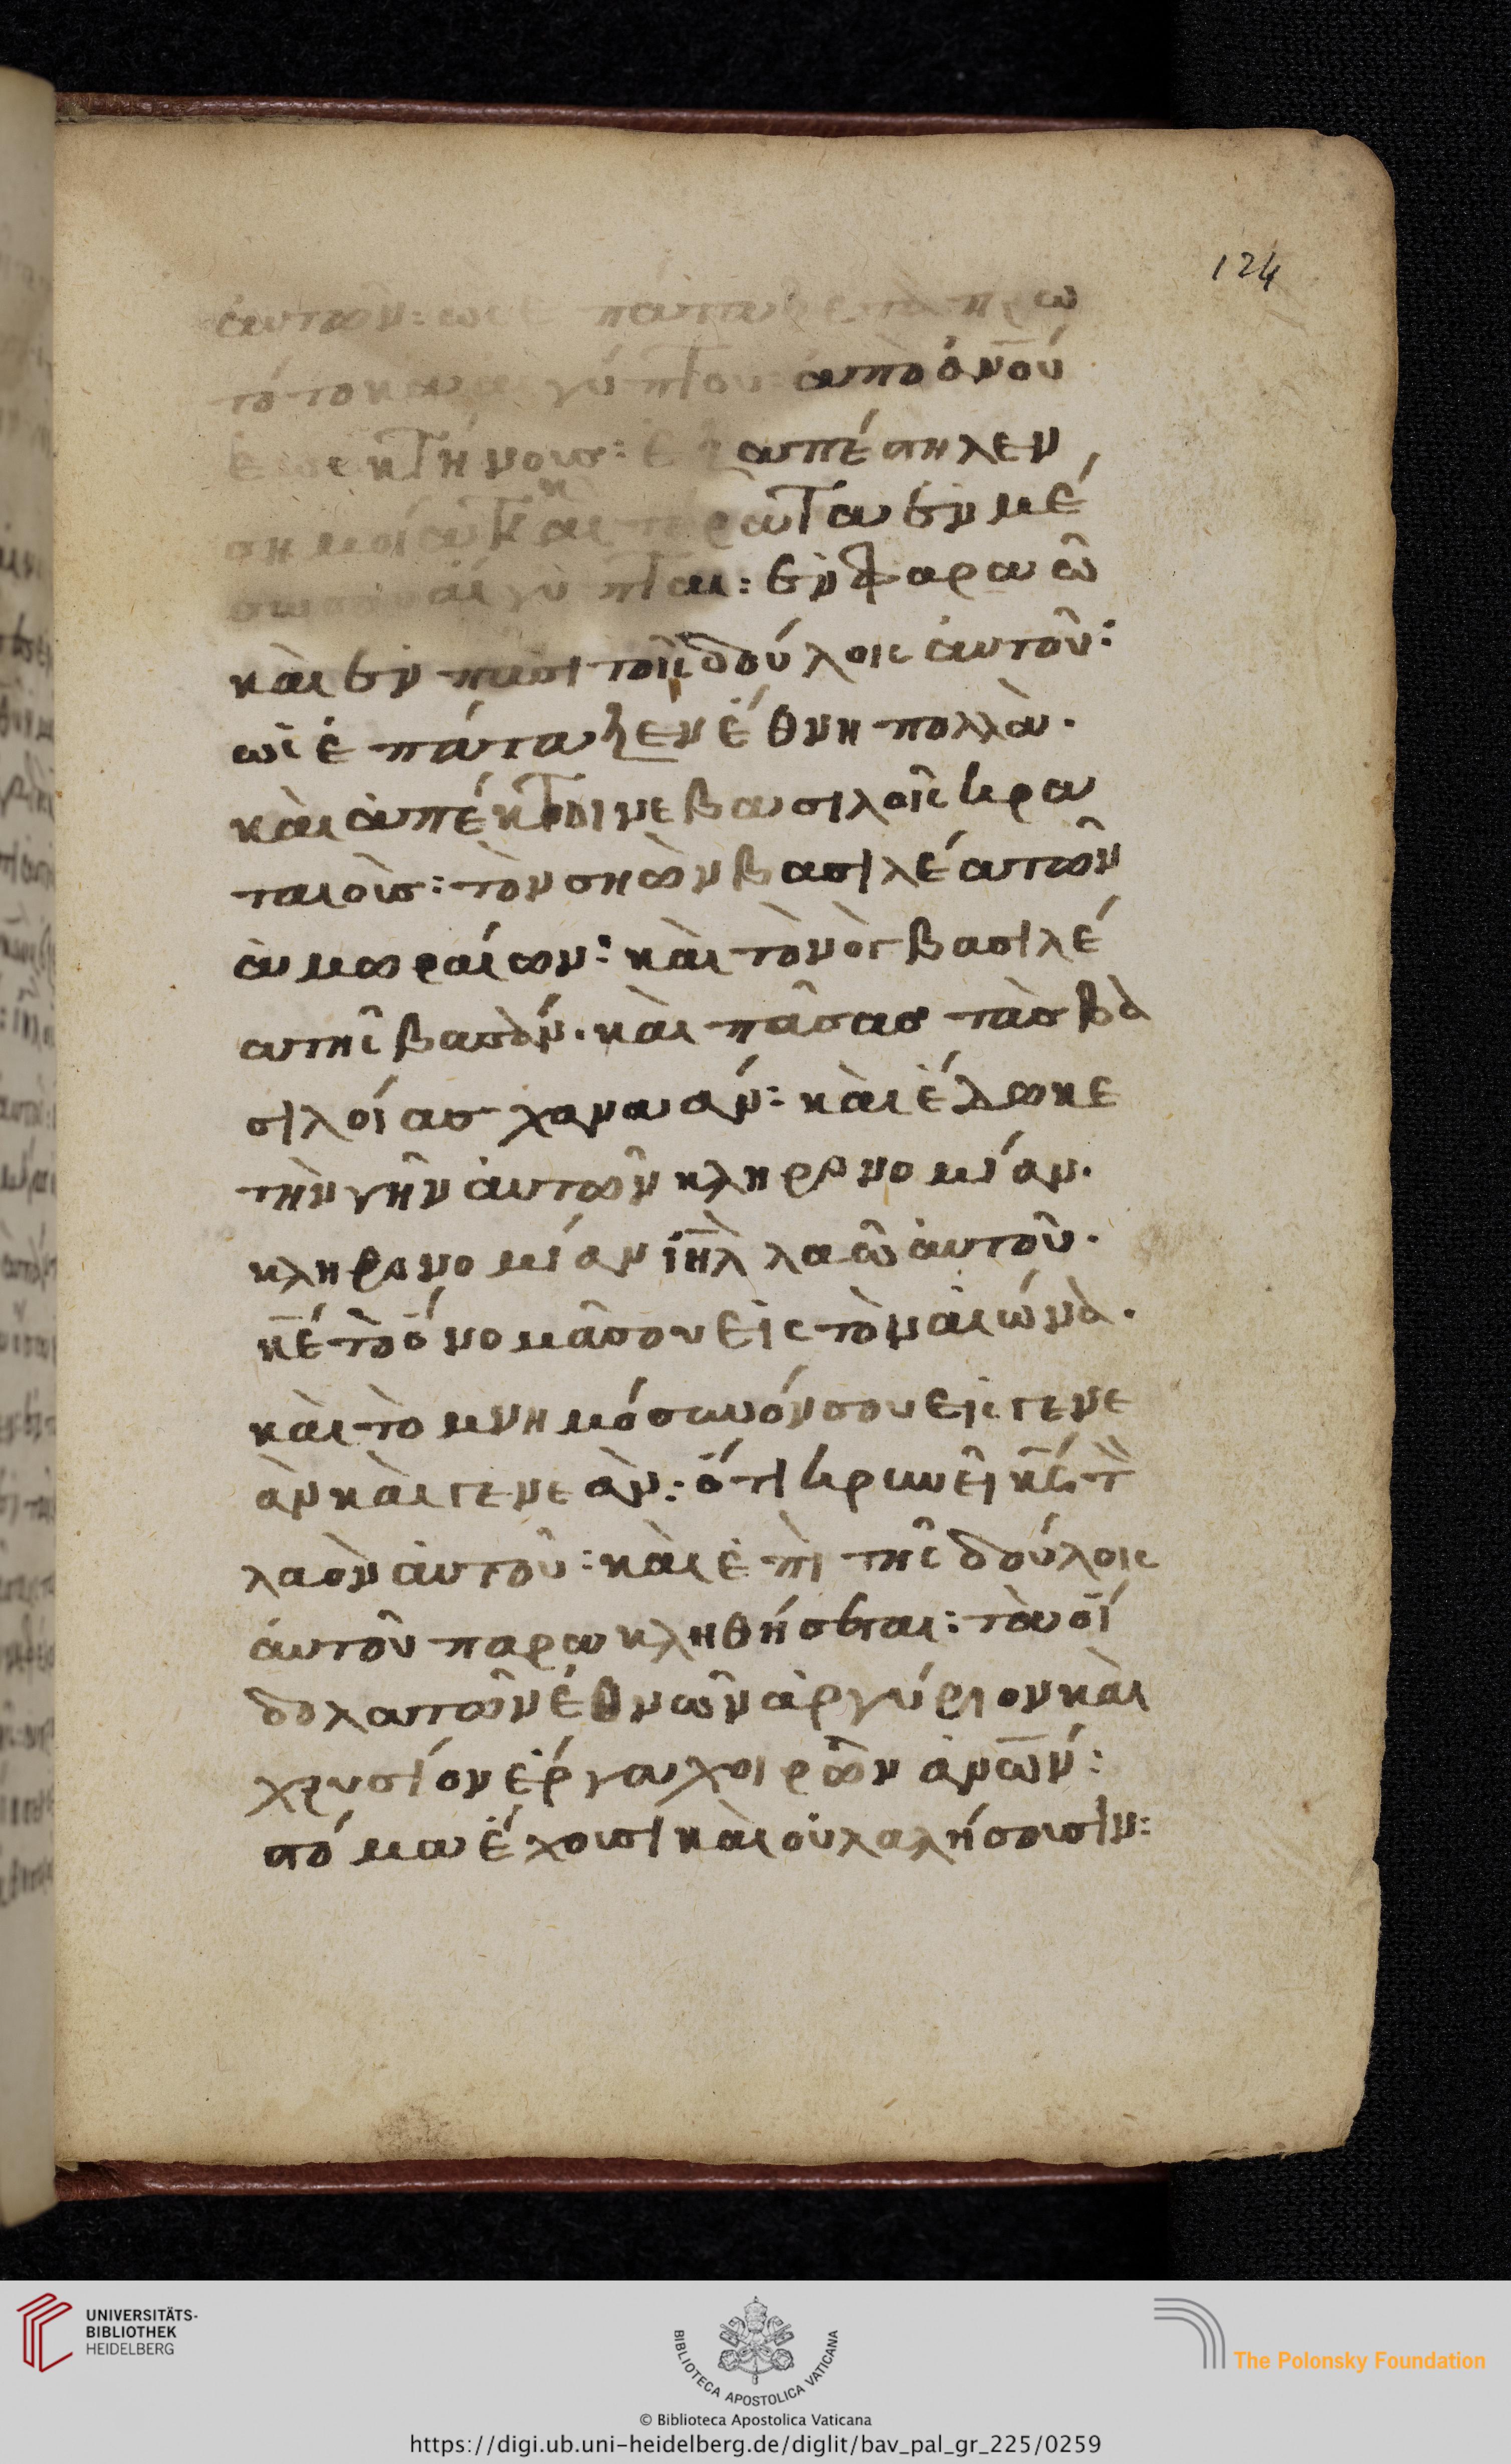 124
ἀυτῶν: ὡσ ἐπάταξε τὰ πρω
τότοκα αἰγύπτου: ἀπὸ ἀν̅ού
ἕωσ κτήνουσ: ἐξαπέστηλεν
σημοία κ αι τέρατα ἐν μέ
σω σου αἴγυπται: ἐν φαραῶ
καὶ ἐν πᾶσι τοῖς δούλοις ἀυτοῦ:
ὡς ἐπάταξεν ἔθνη πολλὰ.
καὶ ἀπέκτοινε βασιλοῖς κρα
ταιοὺσ: τὸν σηὼν βασιλέα τῶν
ἀμωραίων: καὶ τὸν ὸγ βασιλέ
α τῆς βασάν. καὶ πᾶσασ τὰσ βα
σιλοίασ χανασάν: καὶ ἔδωκε
τὴν γῆν ἀυτῶν κληρονομίαν.
κληρονομίαν ἰη̅λ λαῶ ἀυτοῦ.
κ̅έ τὸ ὄνομᾶ σου εἰς τὸν αἰώνὰ.
καὶ τὸ μνημόσυνόν σου εἰς γενε
ὰν καὶ γενεὰν: ὅτι κρινεῖ κ̅ς τ̀
λαὸν ἀυτοῦ: καὶ ἐπὶ τῆς δούλοις
ἀυτοῦ παρακληθήσεται: τὰ οἴ
δολα τῶν ἐθνῶν ἀργύριον καὶ
χρυσίον ἔργα χοιρῶν ἀν̅ων:
στόμα ἔχουσι καὶ οὐ λαλήσουσιν:
UNIVERSITÄTS-
BIBLIOTHEK
HEIDELBERG
BIBLIOTECA APOSTOLICA VATICANA
The Polonsky Foundation
© Biblioteca Apostolica Vaticana
https://digi.ub.uni-heidelberg.de/diglit/bav_pal_gr_225/0259